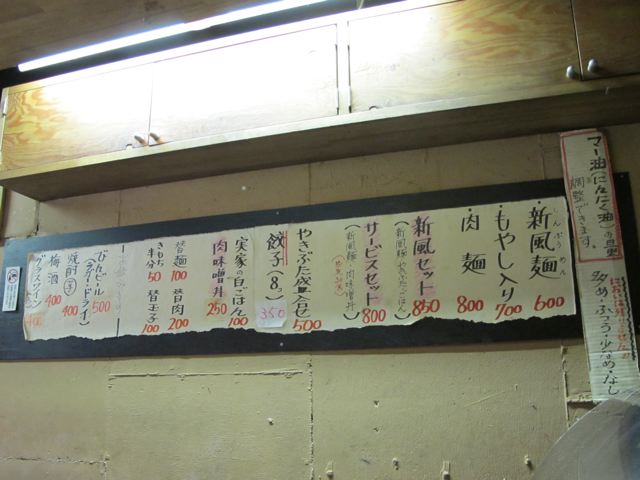 マー油(にんにく油)の量
調整できます。
多め・ふつう・少なめ・なし
しんぷうめん
・新風麺 600
・もやし入り 700
・肉麺 800
新風セット 850
サービスセット 800
(新風麺 肉味噌丼)
やきぶた盛合せ 500
餃子(8コ) 350
実家の白ごはん 100
肉味噌丼 250
替麺 100
替肉 200
きもち半分 50
替玉子 100
びんビール 500
(スーパードライ)
焼酎(芋) 400
梅酒 400
グラスワイン 400